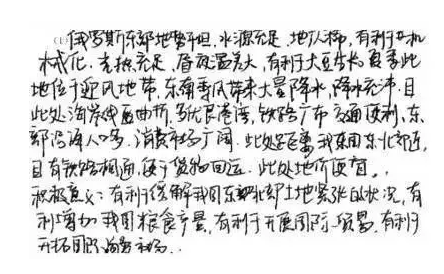 (1) 俄罗斯东部地势平坦,水源充足,地广人稀,有利于机
械化。光热充足,昼夜温差大,有利于大豆生长。夏季此
地位于迎风地带,东南季风带来大量降水,降水充沛。且
此处海岸线曲折,多优良港湾,铁路广布,交通便利。东
部沿海人口多,消费市场广阔。此处距离我东北部近,
且有铁路相通,便于货物回运。此处地价便宜。
积极意义:有利于缓解我国东北部土地紧张的状况,有
利增加我国粮食产量,有利于开展国际贸易,有利于
开拓国际海外市场.